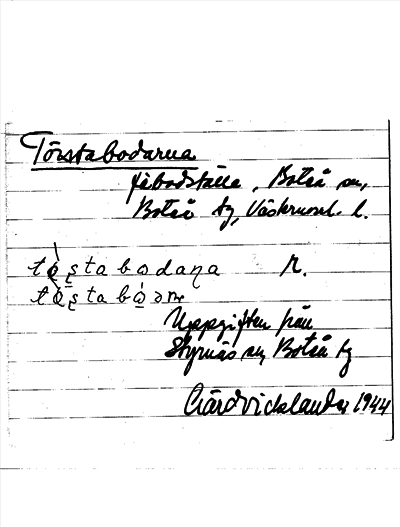 Törstabodarna
fäbodställe, Boteå sn,
Boteå tg, Västernorrl. l.
tò̀s̨tabodaṇa n.
Uppgiften från
Styrnäs sn, Boteå tg
Gärd Vicklander 1944